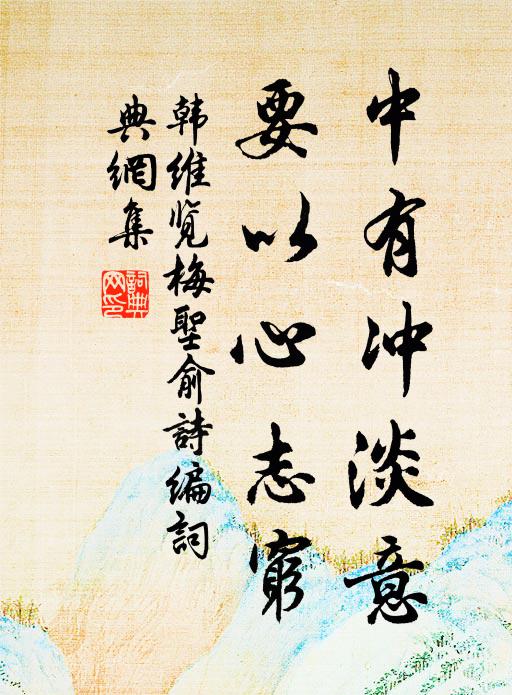 中有冲淡意
要以心志穷
韩维览梅聖俞詩编詞
典網集
詞典网印